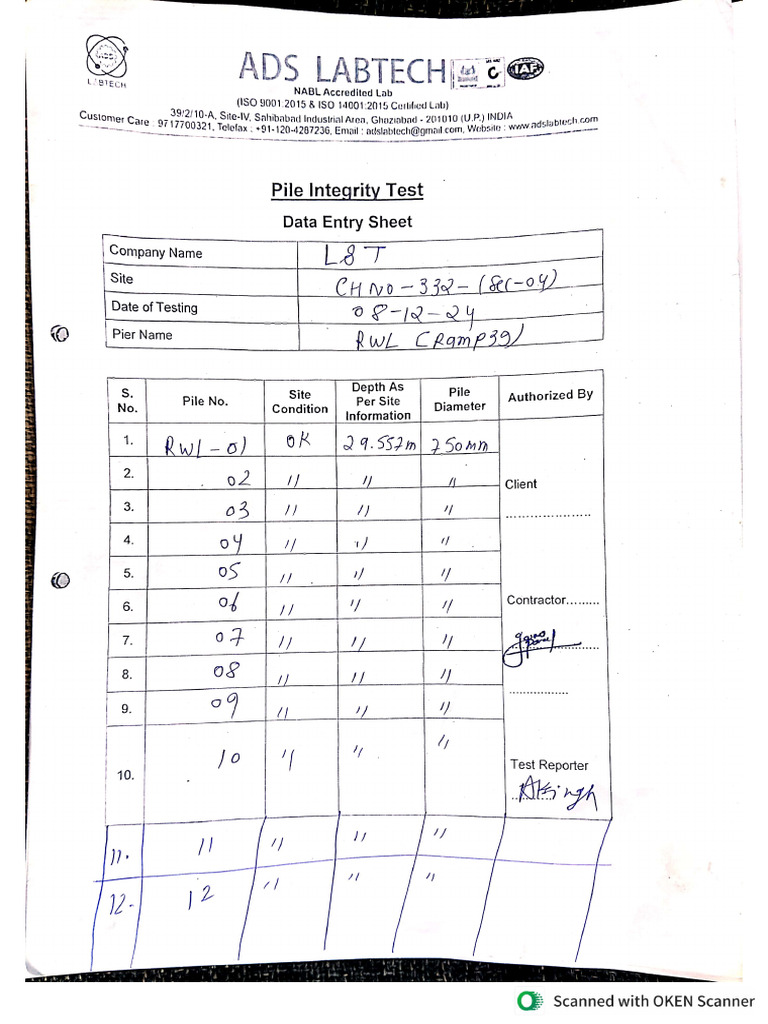 LABTECH
ADS LABTECH
NABL Accredited Lab
(ISO 9001:2015 & ISO 14001:2015 Certified Lab)
39/2/10-A, Site-IV, Sahibabad Industrial Area, Ghaziabad - 201010 (U.P.) INDIA
Customer Care : 9717700321, Telefax : +91-120-4287236, Email : adslabtech@gmail.com, Website : www.adslabtech.com
Pile Integrity Test
Data Entry Sheet
Company Name L&T
Site CHNO-332-(Sec-04)
Date of Testing 08-12-24
Pier Name RWL (Ramp39)
S. No. Pile No. Site Condition Depth As Per Site Information Pile Diameter Authorized By
1. RWL-01 OK 29.557m 750mm
2. 02 " " "
Client
3. 03 " " "
4. 04 " " "
5. 05 " " "
6. 06 " " "
Contractor.........
7. 07 " " "
8. 08 " " "
9. 09 " " "
10. 10 " " "
Test Reporter
AKSingh
11. 11 " " "
12. 12 " " "
Scanned with OKEN Scanner